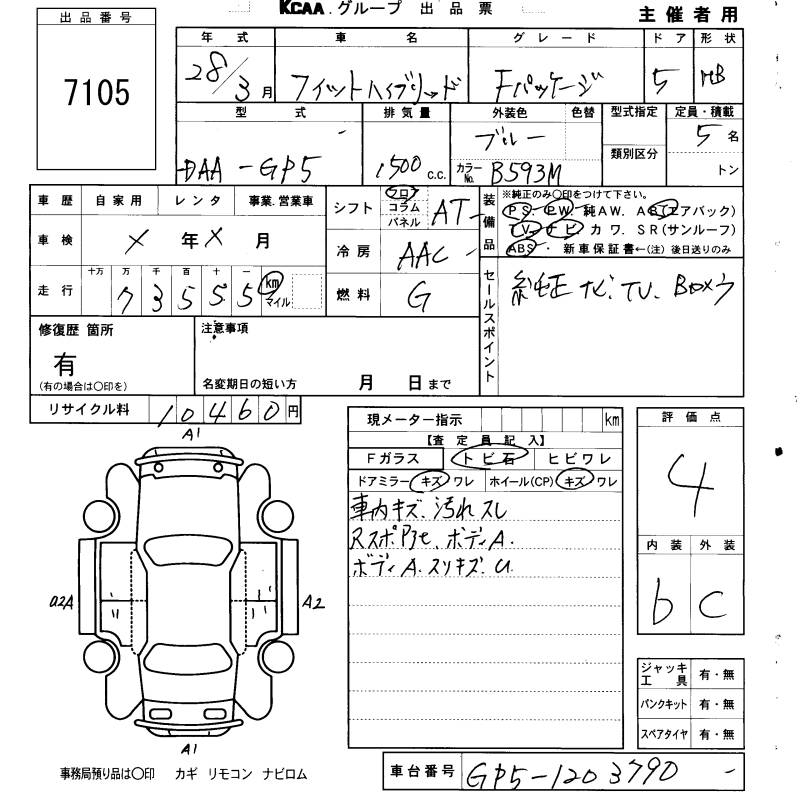 KCAA.グループ 出品票
主催者用
出品番号
7105
年式 車名 グレード ドア 形状
28/3月 フィットハイブリッド Fパッケージ 5 HB
型式 排気量 外装色 色替 型式指定 定員・積載
DAA-GP5 1500 c.c. ブルー 5名
カラーNo. B593M 類別区分 トン
車歴 自家用 レンタ 事業.営業車
シフト フロア コラム パネル AT
装備品 ※純正のみ○印をつけて下さい。
PS. PW. 純AW. AB(エアバック)
TV. ナビ カワ. SR(サンルーフ)
ABS・ 新車保証書←(注) 後日送りのみ
車検 × 年 × 月
冷房 AAC
走行 十万 万 千 百 十 一
73555 km マイル
燃料 G
セールスポイント
純正ナビ.TV.
修復歴 箇所
有
(有の場合は○印を)
注意事項
名変期日の短い方 月 日まで
リサイクル料 10460円
現メーター指示 km
【査定員記入】
Fガラス トビ石 ヒビワレ
ドアミラー キズ ワレ ホイール(CP) キズ ワレ
車内キズ.汚れスレ
ボディA.
ボディA.スリキズ.U.
評価点
4
内装 外装
b C
A1
A2
A1
ジャッキ工具 有・無
パンクキット 有・無
スペアタイヤ 有・無
事務局預り品は○印 カギ リモコン ナビロム
車台番号 GP5-1203790